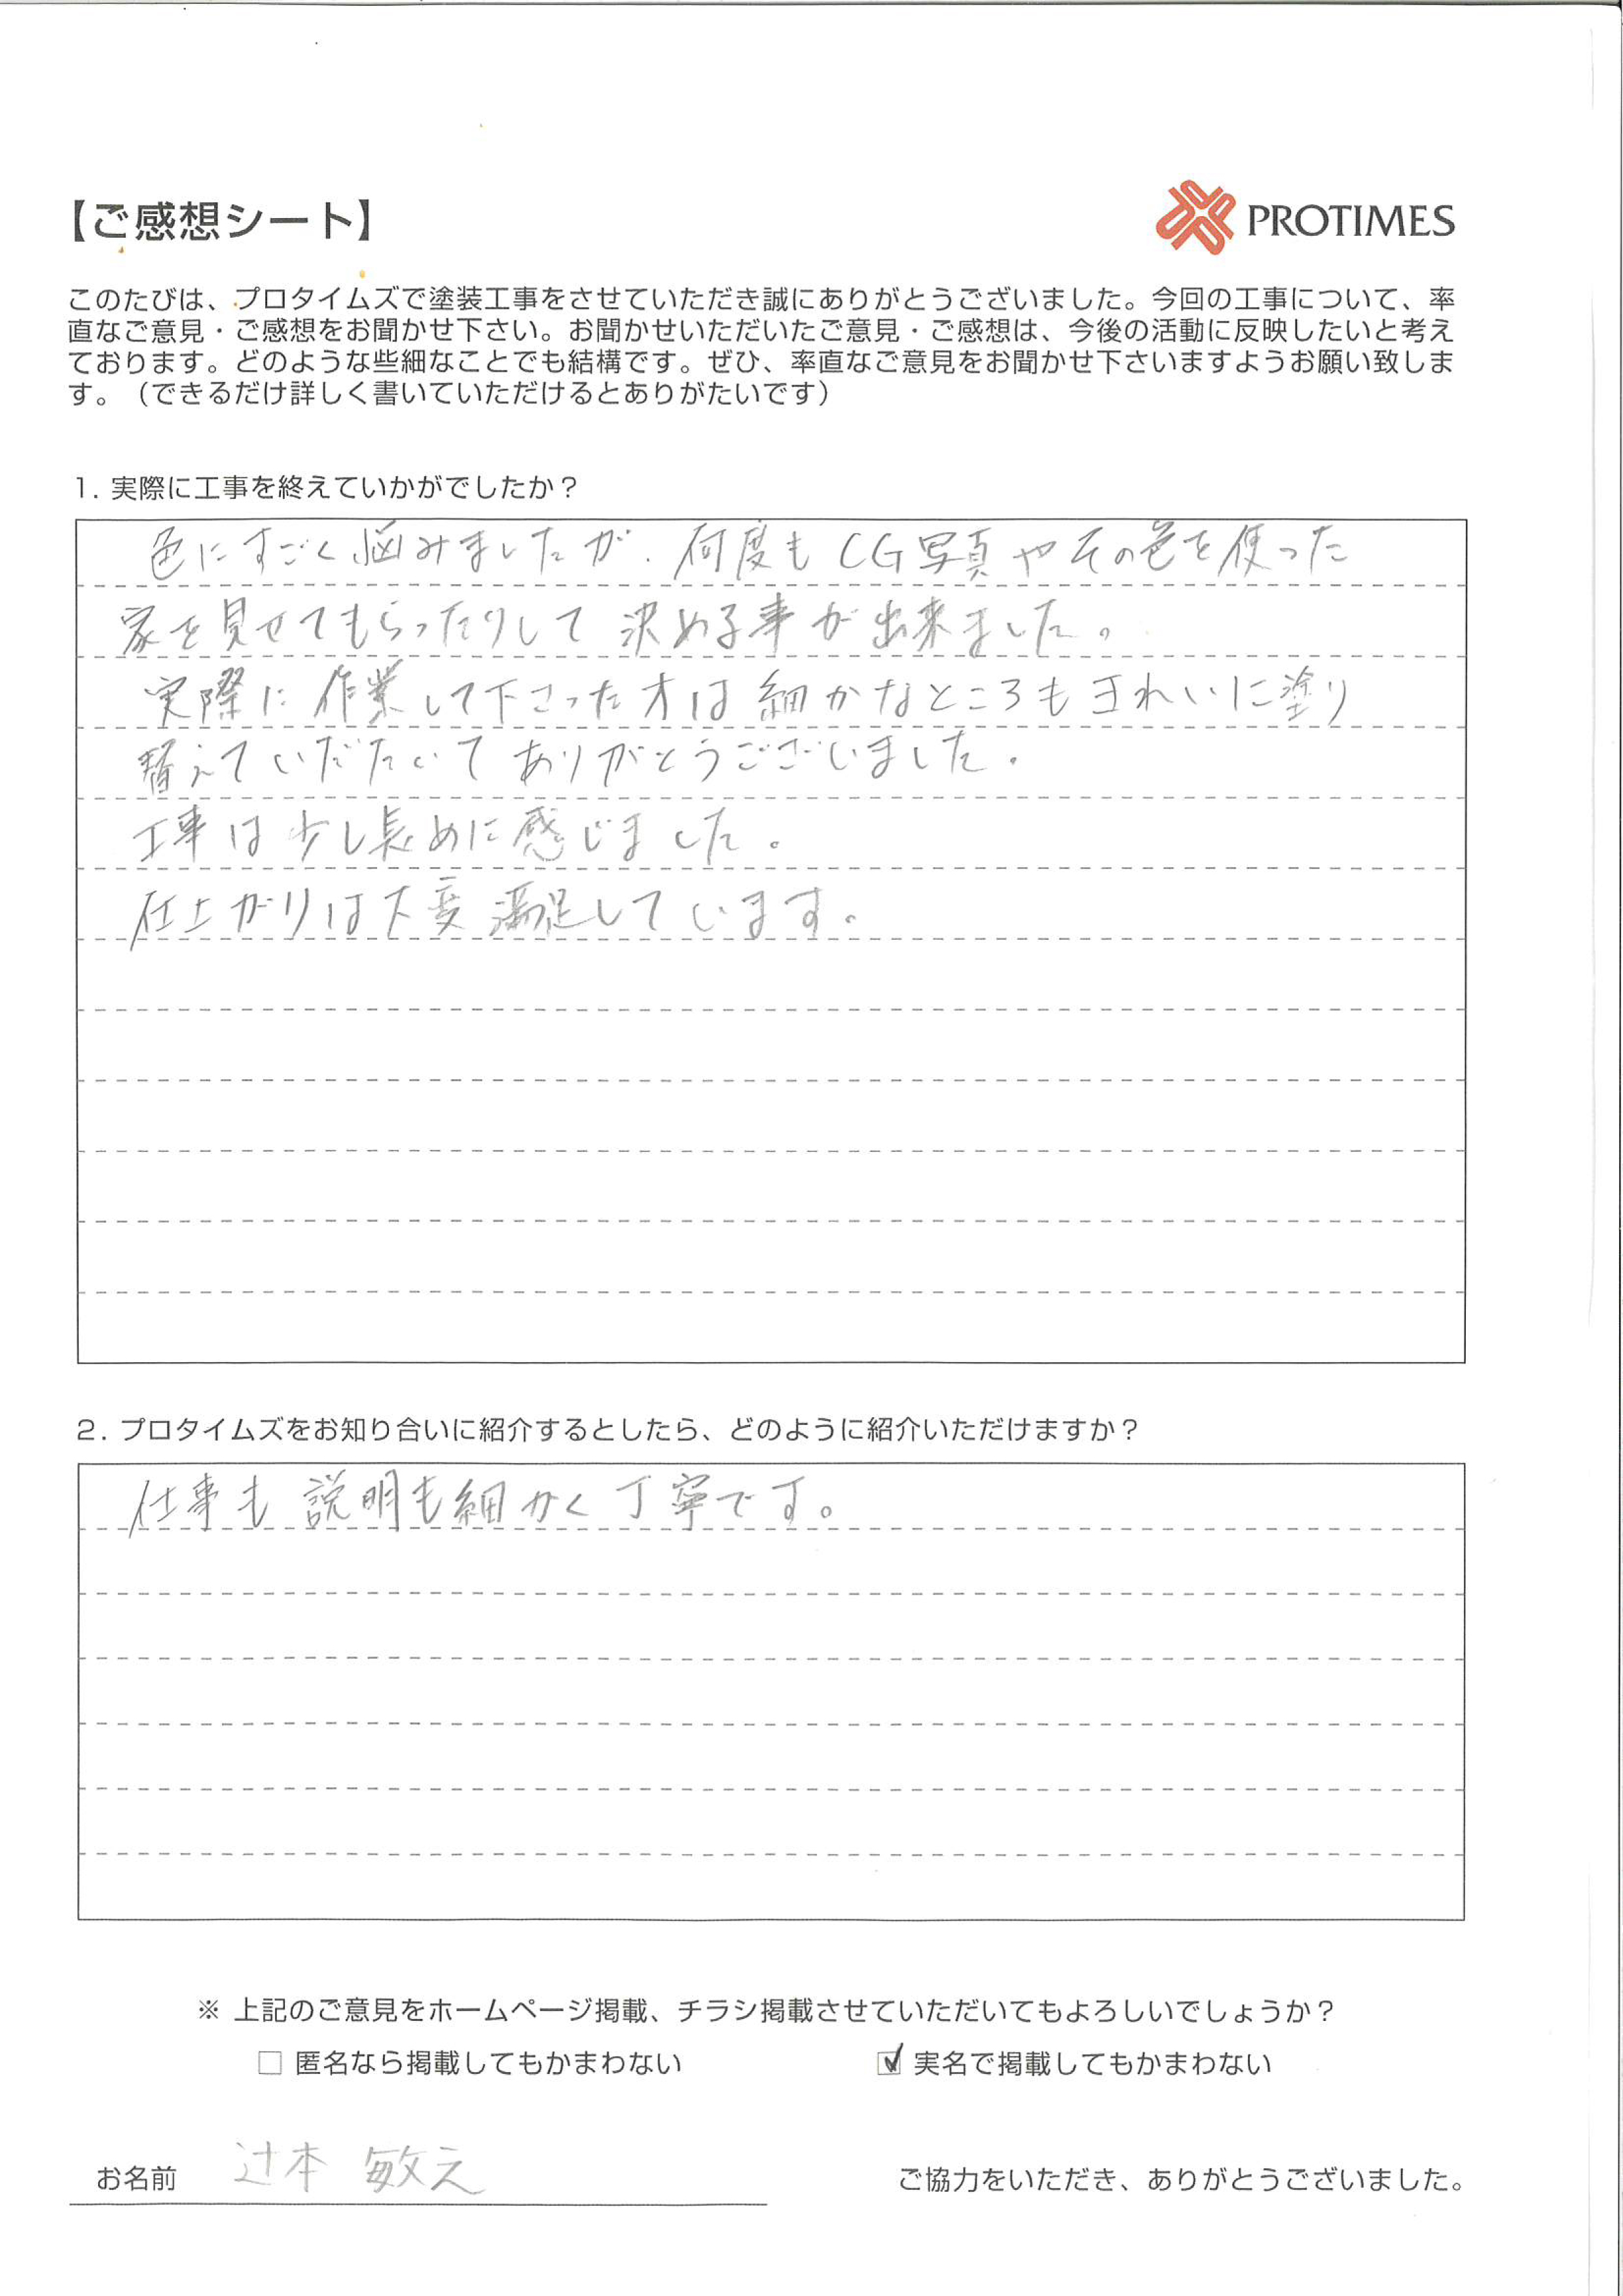 【ご感想シート】
PROTIMES
このたびは、プロタイムズで塗装工事をさせていただき誠にありがとうございました。今回の工事について、率
直なご意見・ご感想をお聞かせ下さい。お聞かせいただいたご意見・ご感想は、今後の活動に反映したいと考え
ております。どのような些細なことでも結構です。ぜひ、率直なご意見をお聞かせ下さいますようお願い致しま
す。（できるだけ詳しく書いていただけるとありがたいです）
1. 実際に工事を終えていかがでしたか？
色にすごく悩みましたが、何度もCG写真やその色を使った
家を見せてもらったりして決める事が出来ました。
実際に作業して下さった方は細かなところもきれいに塗り
替えていだたいてありがとうございました。
工事は少し長めに感じました。
仕上がりは大変満足しています。
2. プロタイムズをお知り合いに紹介するとしたら、どのように紹介いただけますか？
仕事も説明も細かく丁寧です。
※ 上記のご意見をホームページ掲載、チラシ掲載させていただいてもよろしいでしょうか？
□ 匿名なら掲載してもかまわない ☑ 実名で掲載してもかまわない
お名前 辻本 敏え ご協力をいただき、ありがとうございました。